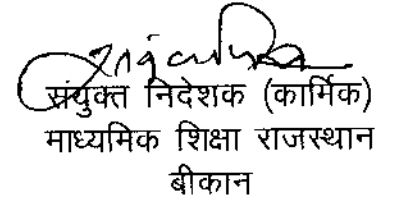 संयुक्त निदेशक (कार्मिक)
माध्यमिक शिक्षा राजस्थान
बीकान